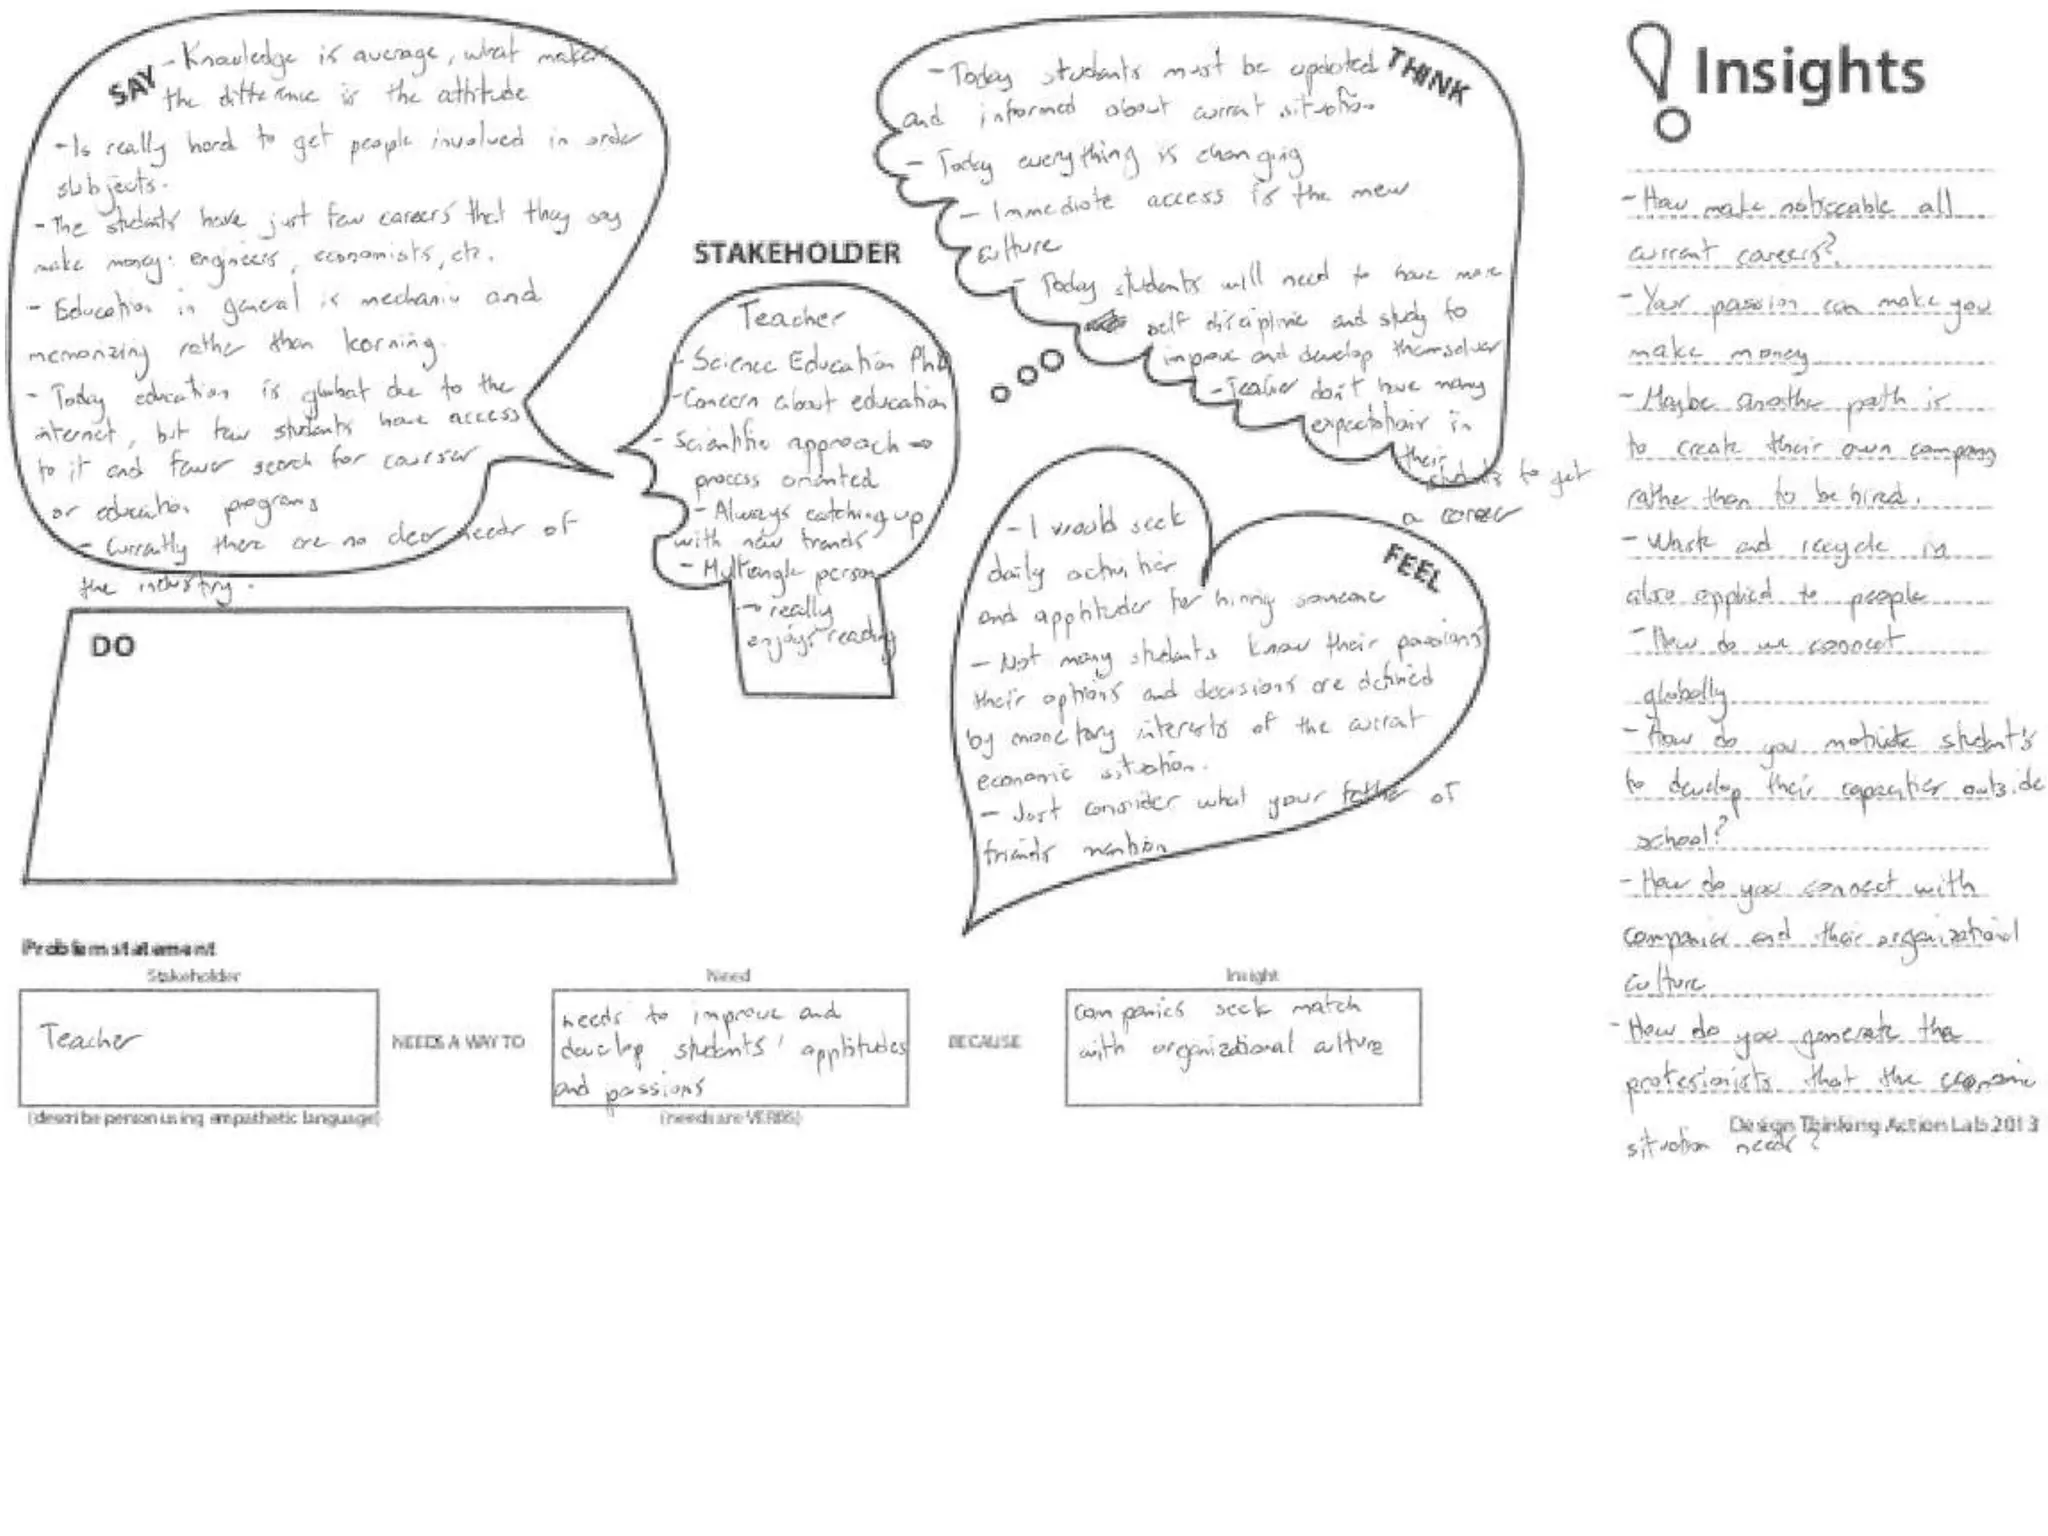 SAY
- Knowledge is average, what makes
the difference is the attitude
- Is really hard to get people involved in order
subjects.
- The students have just few careers that they say
make money: engineers, economists, etc.
- Education in general is mechanic and
memorizing rather than learning.
- Today education is global due to the
internet, but few students have access
to it and fewer search for courses
or education programs
- Currently there are no clear needs of
the industry.
DO
STAKEHOLDER
Teacher
- Science Education PhD
- Concern about education
- Scientific approach →
process oriented
- Always catching up
with new trends
- Multiangle person
→ really
enjoys reading
THINK
- Today students must be updated
and informed about current situation
- Today everything is changing
- Immediate access is the new
culture
- Today students will need to have more
self discipline and study to
improve and develop themselves
- Teacher don't have many
expectations in
their
students to get
a career
FEEL
- I would seek
daily activities
and apptitudes for hiring someone
- Not many students know their passions
their options and decisions are defined
by monetary interests of the current
economic situation.
- Just consider what your father or
friends mention
Insights
- How make noticeable all
current careers?
- Your passion can make you
make money
- Maybe another path is
to create their own company
rather than to be hired.
- Waste and recycle is
also applied to people
- How do we connect
globally
- How do you motivate student's
to develop their capacities outside
school?
- How do you connect with
companies and their organizational
culture
- How do you generate the
profesionists that the economic
situation needs?
Problem statement
Stakeholder
Teacher
(describe person using empathetic language)
NEEDS A WAY TO
Need
needs to improve and
develop students' apptitudes
and passions
(needs are VERBS)
BECAUSE
Insight
companies seek match
with organizational culture
Design Thinking Action Lab 2013